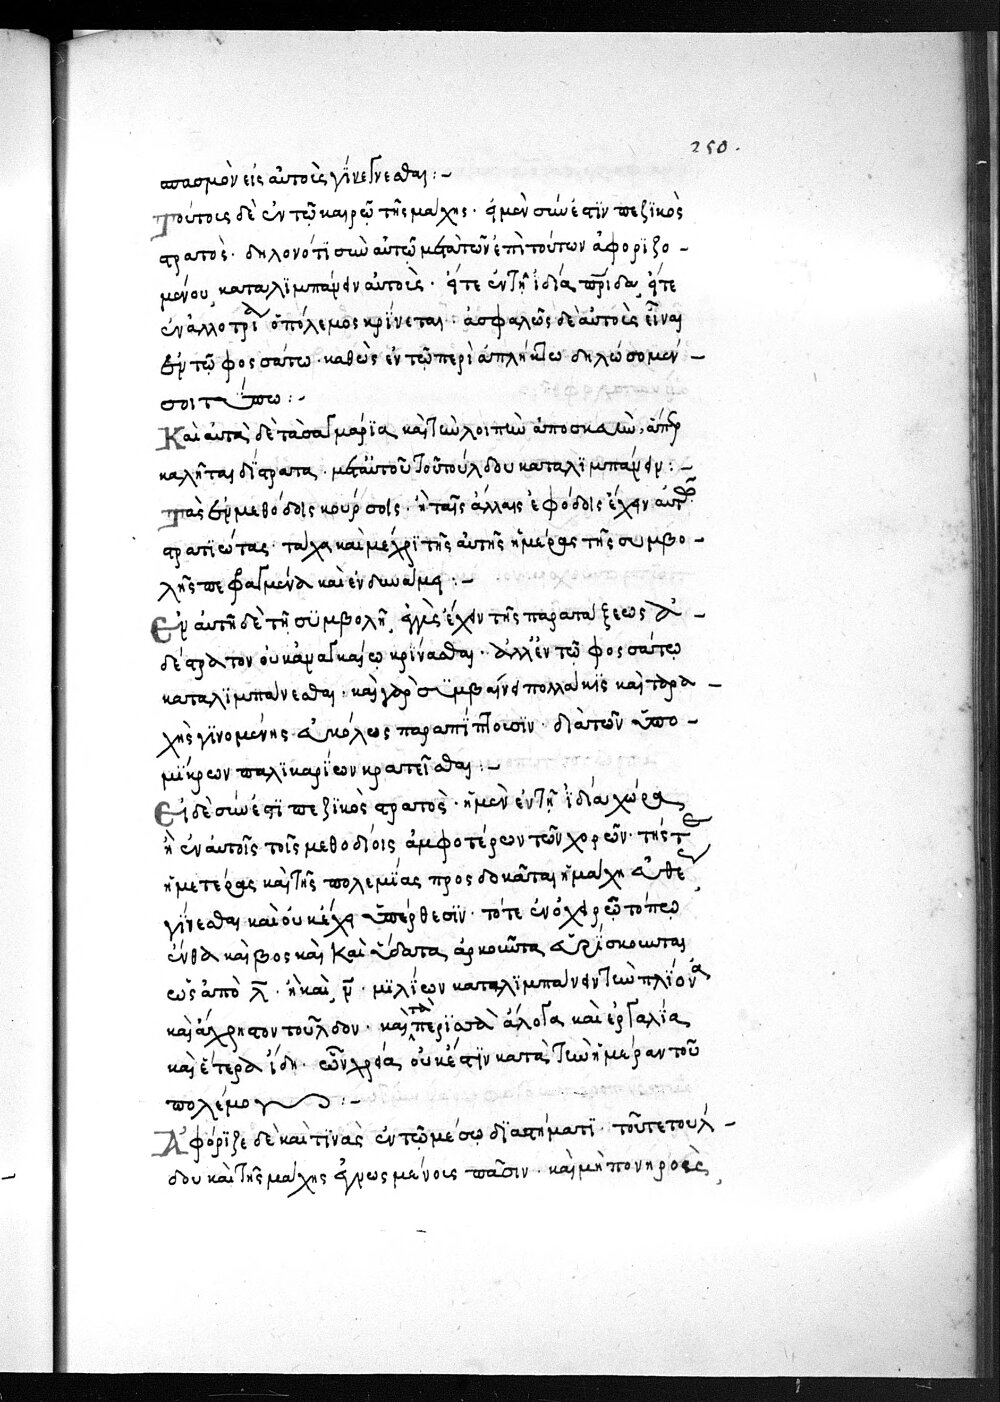 250.
σπασμὸν εἰς αὐτοὺς γίνεσθαι :-
Τούτοις δὲ ἐν τῷ καιρῷ τῆς μάχης · εἰ μὲν σύνεστϊν πεζϊκὸς
στρατὸς · δηλονότϊ σὺν αὐτῷ μετὰ τῶν ἐπὶ τούτων ἀφορϊζο-
μένου, καταλϊμπάνειν αὐτοὺς · εἴτε ἐν τῇ ἰδίᾳ πρίδα, εἴτε
ἐν ἀλλοτρίᾳ ὁ πόλεμος κρίνεται · ἀσφαλῶς δὲ αὐτοὺς εἶναι
ἐν τῷ φοσσάτω · καθὼς ἐν τῷ περὶ ἀπλήκτω δηλώσομέν-
σοι τόπω :-
Καὶ αὐτὰ δὲ τὰ σαγμάρϊα, καὶ τὴν λοιπὴν ἀποσκευὴν, ἅπερ
καλῆται δϊστρατα · μετ' αὐτοῦ τοῦ τούλδου καταλϊμπάνειν :-
Τὰς ἐν μεθόδοις κούρσοις · ἢ ταῖς ἄλλαις ἐφόδοις ἔχειν αὐτοὺς
στρατϊώτας · τάχα καὶ μέχρϊ τῆς αὐτῆς ἡμέρας τῆς συμβο-
λῆς πεφαγμένα καὶ ἐνδυνάμει :-
Ἐν αὐτῇ δὲ τῇ συμβολῇ, ἐγγὺς ἔχειν τῆς παρατάξεως ἀ-
δέστρατον οὐκ ἀναγκαίῳ κρίνασθαι · ἀλλ' ἐν τῷ φοσσάτῳ
καταλϊμπάνεσθαι · καὶ γὰρ συμβαίνει πολλάκϊς καὶ ταρα-
χῆς γϊνομένης εὐκόλως παραπίπτουσϊν · διὰ τῶν ὑπο-
μίκρων παλϊκαρίων κρατεῖσθαι :-
Εἰ δὲ σύνεστϊ πεζϊκὸς στρατὸς · ἢ μὲν ἐν τῇ ἰδίᾳ χώρᾳ,
ἢ ἐν αὐτοῖς τοῖς μεθοδίοις ἀμφοτέρων τῶν χορῶν · τῆς τε
ἡμετέρας καὶ τῆς πολεμίας προσδοκᾶται ἡ μάχη εὐθὺς,
γίνεσθαι καὶ οὐκ ἔχει ὑπέρθεσϊν · τότε ἐν ὀχυρῷ τόπῳ
ἔνθα καὶ βοσκαὶ καὶ ὕδατα, ἀρκοῦντα εὑρϊσκουνται
ἕως ἀπὸ λ̅ · ἢ καὶ, ν̅ · μϊλϊων καταλϊμπάνειν τὴν πλίονα
καὶ ἄχρηστον τοῦλδον · καὶ τὰ περϊσσὰ ἄλογα, καὶ ἐργαλία,
καὶ ἕτερα ἴδη · ὧν χρεία, οὐκ ἔστϊν κατὰ τὴν ἡμέραν τοῦ
πολέμου :-
Ἀφόρϊζε δὲ καὶ τϊνὰς ἐν τῷ μέσῳ δϊαστήματϊ · τοῦ τε τούλ-
δου καὶ τῆς μάχης ἐγνωσμένοις πᾶσιν · καὶ μὴ πονηροὺς,